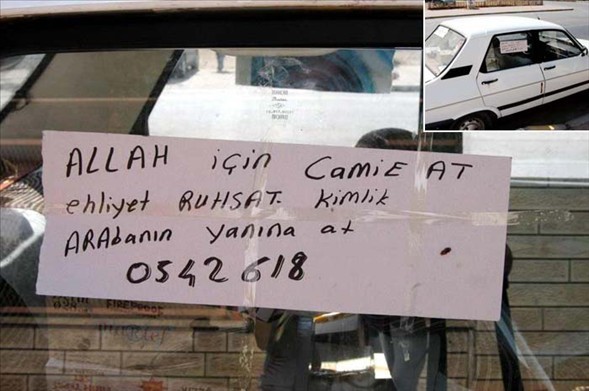 ALLAH için CamiE AT
ehliyet RUHSAT. Kimlik
ARAbanın yanına at
0542 618